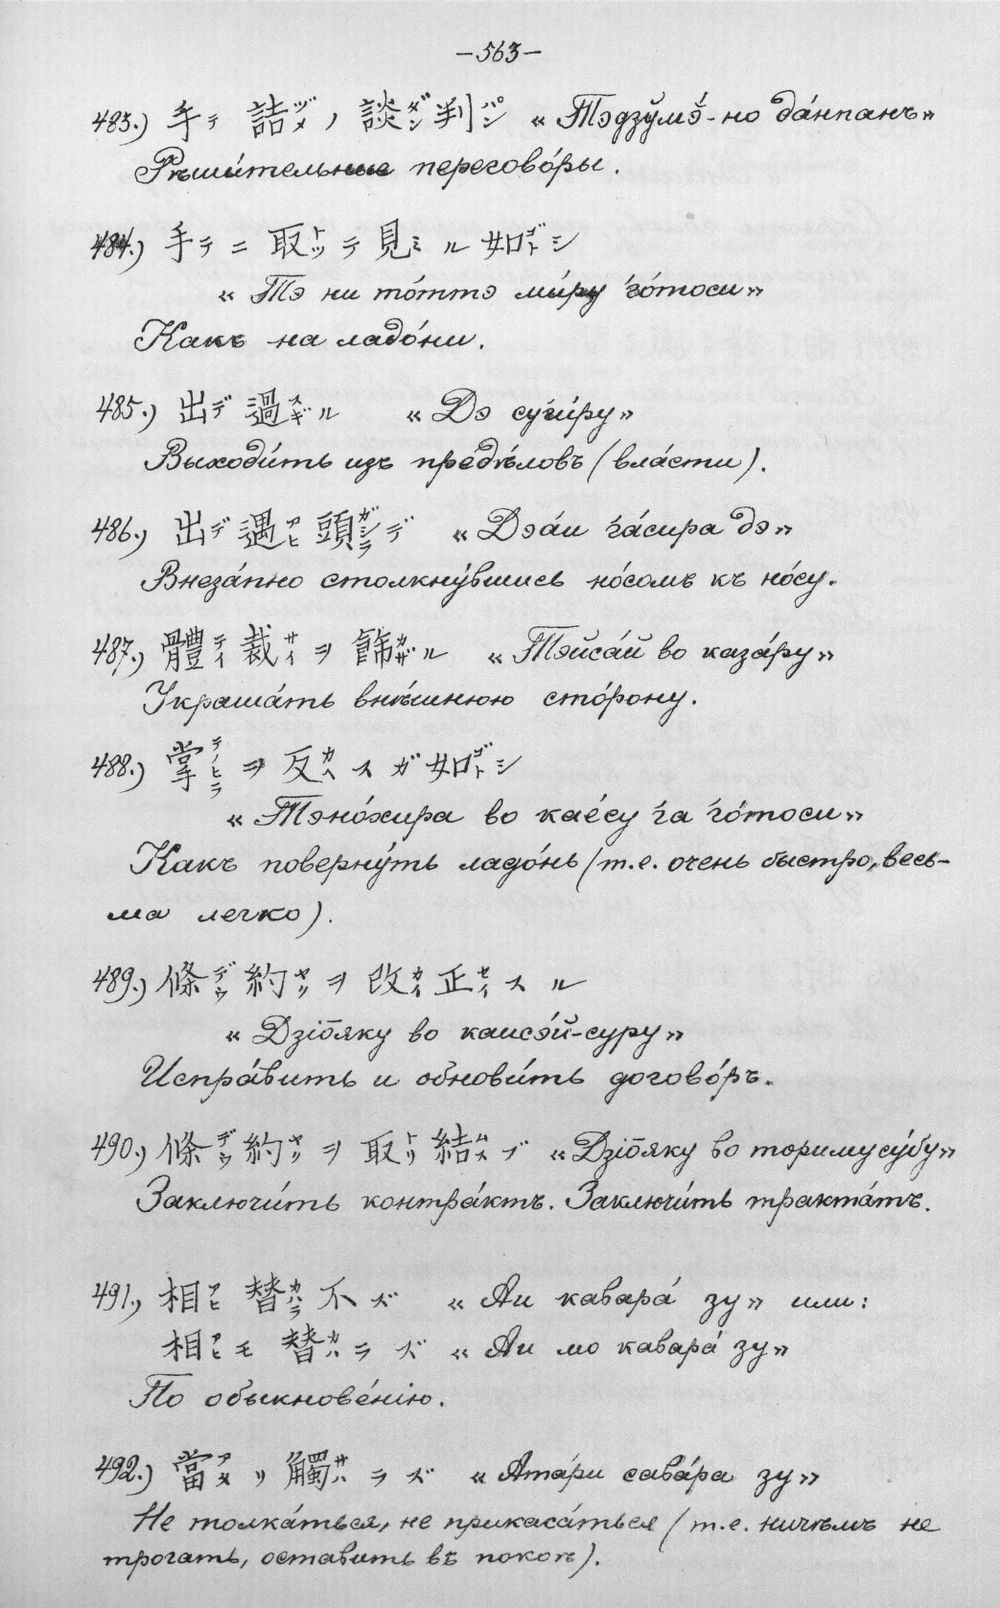 —563—
483.) 手テ 詰ヅメノ 談ダン判パン «Тэдзӯмэ́-но да́нпанъ»
Рѣши́тельные перегово́ры.
484.) 手テニ 取トッテ 見ミル 如ゴトシ
«Тэ ни то́ттэ ми́ру го́тоси»
Какъ на ладо́ни.
485.) 出デ 過スギル «Дэ суги́ру»
Выходи́ть изъ предѣ́ловъ (вла́сти).
486.) 出デ 遇アヒ 頭ガシラデ «Дэа́и га́сира дэ»
Внеза́пно столкну́вшись но́сомъ къ но́су.
487.) 體テイ 裁サイヲ 飾カザル «Тэйса́й во каза́ру»
Украша́ть внѣ́шнюю сто́рону.
488.) 掌テノヒラヲ 反カヘスガ 如ゴトシ
«Тэно́хира во кае́су га го́тоси»
Какъ поверну́ть ладо́нь (т.е. очень быстро, весь-
ма легко).
489.) 條デウ 約ヤクヲ 改カイ 正セイスル
«Дзіо̄яку во каисэ́й-суру»
Испра́вить и обнови́ть догово́ръ.
490.) 條デウ 約ヤクヲ 取トリ 結ムスブ «Дзіо̄яку во торимусу́бу»
Заключи́ть контра́ктъ. Заключи́ть тракта́тъ.
491.) 相アヒ 替カハラ 不ズ «Аи кавара́ зу» или:
相アヒモ 替カハラズ «Аи мо кавара́ зу»
По обыкнове́нію.
492.) 當アタリ 觸サハラズ «Ата́ри сава́ра зу»
Не толка́ться, не прикаса́ться (т.е. ничѣмъ не
трогать, оставить въ покоѣ).